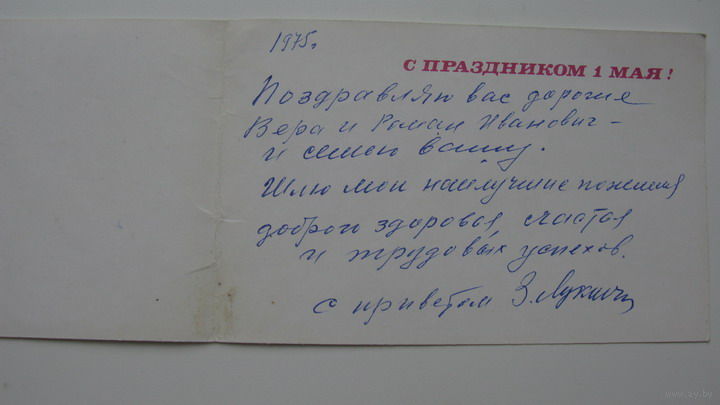 1975г.
С ПРАЗДНИКОМ 1 МАЯ!
Поздравляю вас дорогие
Вера и Роман Иванович –
и семью вашу.
Шлю мои наилучшие пожелания
доброго здоровья, счастья
и трудовых успехов.
с приветом З.
www.ay.by